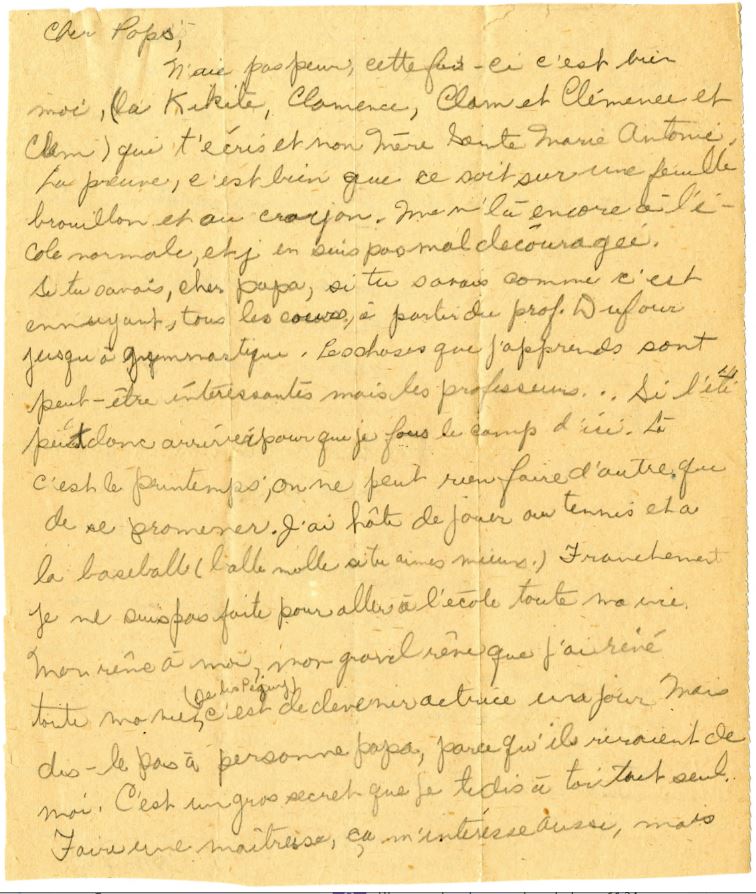 Cher Pops,
N'aie pas peur, cette fois-ci c'est bien
moi, (la Kikite, Clamence, Clam et Clémence et
Clem) qui t'écris et non Mère Sainte Marie Antonie.
La preuve, c'est bien que ce soit sur une feuille
brouillon et au crayon. Me v'là encore à l'é-
cole normale, et j'en suis pas mal découragée.
Si tu savais, cher papa, si tu savais comme c'est
ennuyant, tous les cours, à partir du prof. Dufour
jusqu'à gymnastique. Les choses que j'apprends sont
peut-être intéressantes mais les professeurs... Si l'été
peut donc arriver pour que je fous le camp d'ici. Là
c'est le printemps, on ne peut rien faire d'autre que
de se promener. J'ai hâte de jouer au tennis et à
la baseball (balle molle si tu aimes mieux.) Franchement
je ne suis pas faite pour aller à l'école toute ma vie.
Mon rêve à moi, mon grand rêve que j'ai rêvé
toute ma vie, c'est de devenir actrice un jour Mais
dis-le pas à personne papa, parce qu'ils riraient de
moi. C'est un gros secret que je te dis à toi tout seul.
Faire une maîtresse, ça m'intéresse aussi, mais